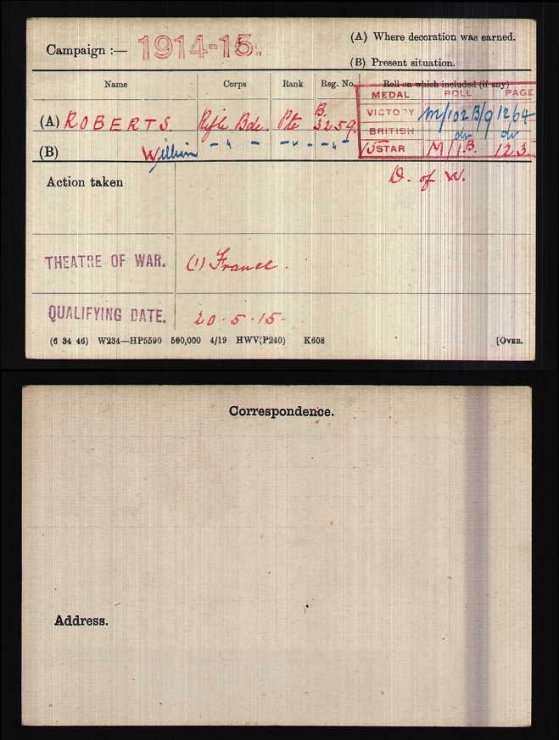 Campaign :— 1914-15.
(A) Where decoration was earned.
(B) Present situation.
Name Corps Rank Reg. No. Roll on which included (if any)
MEDAL ROLL PAGE
(A) ROBERTS Rifle Bde. Pte B. 3259.
VICTORY M/102B/9 1264
BRITISH do do
(B) William - " - - " - - " -
15 STAR M/1.B. 123.
Action taken
D. of W.
THEATRE OF WAR. (1) France.
QUALIFYING DATE. 20.5.15-
(6 34 46) W234—HP5590 500,000 4/19 HWV(P240) K608 [OVER.
Correspondence.
Address.